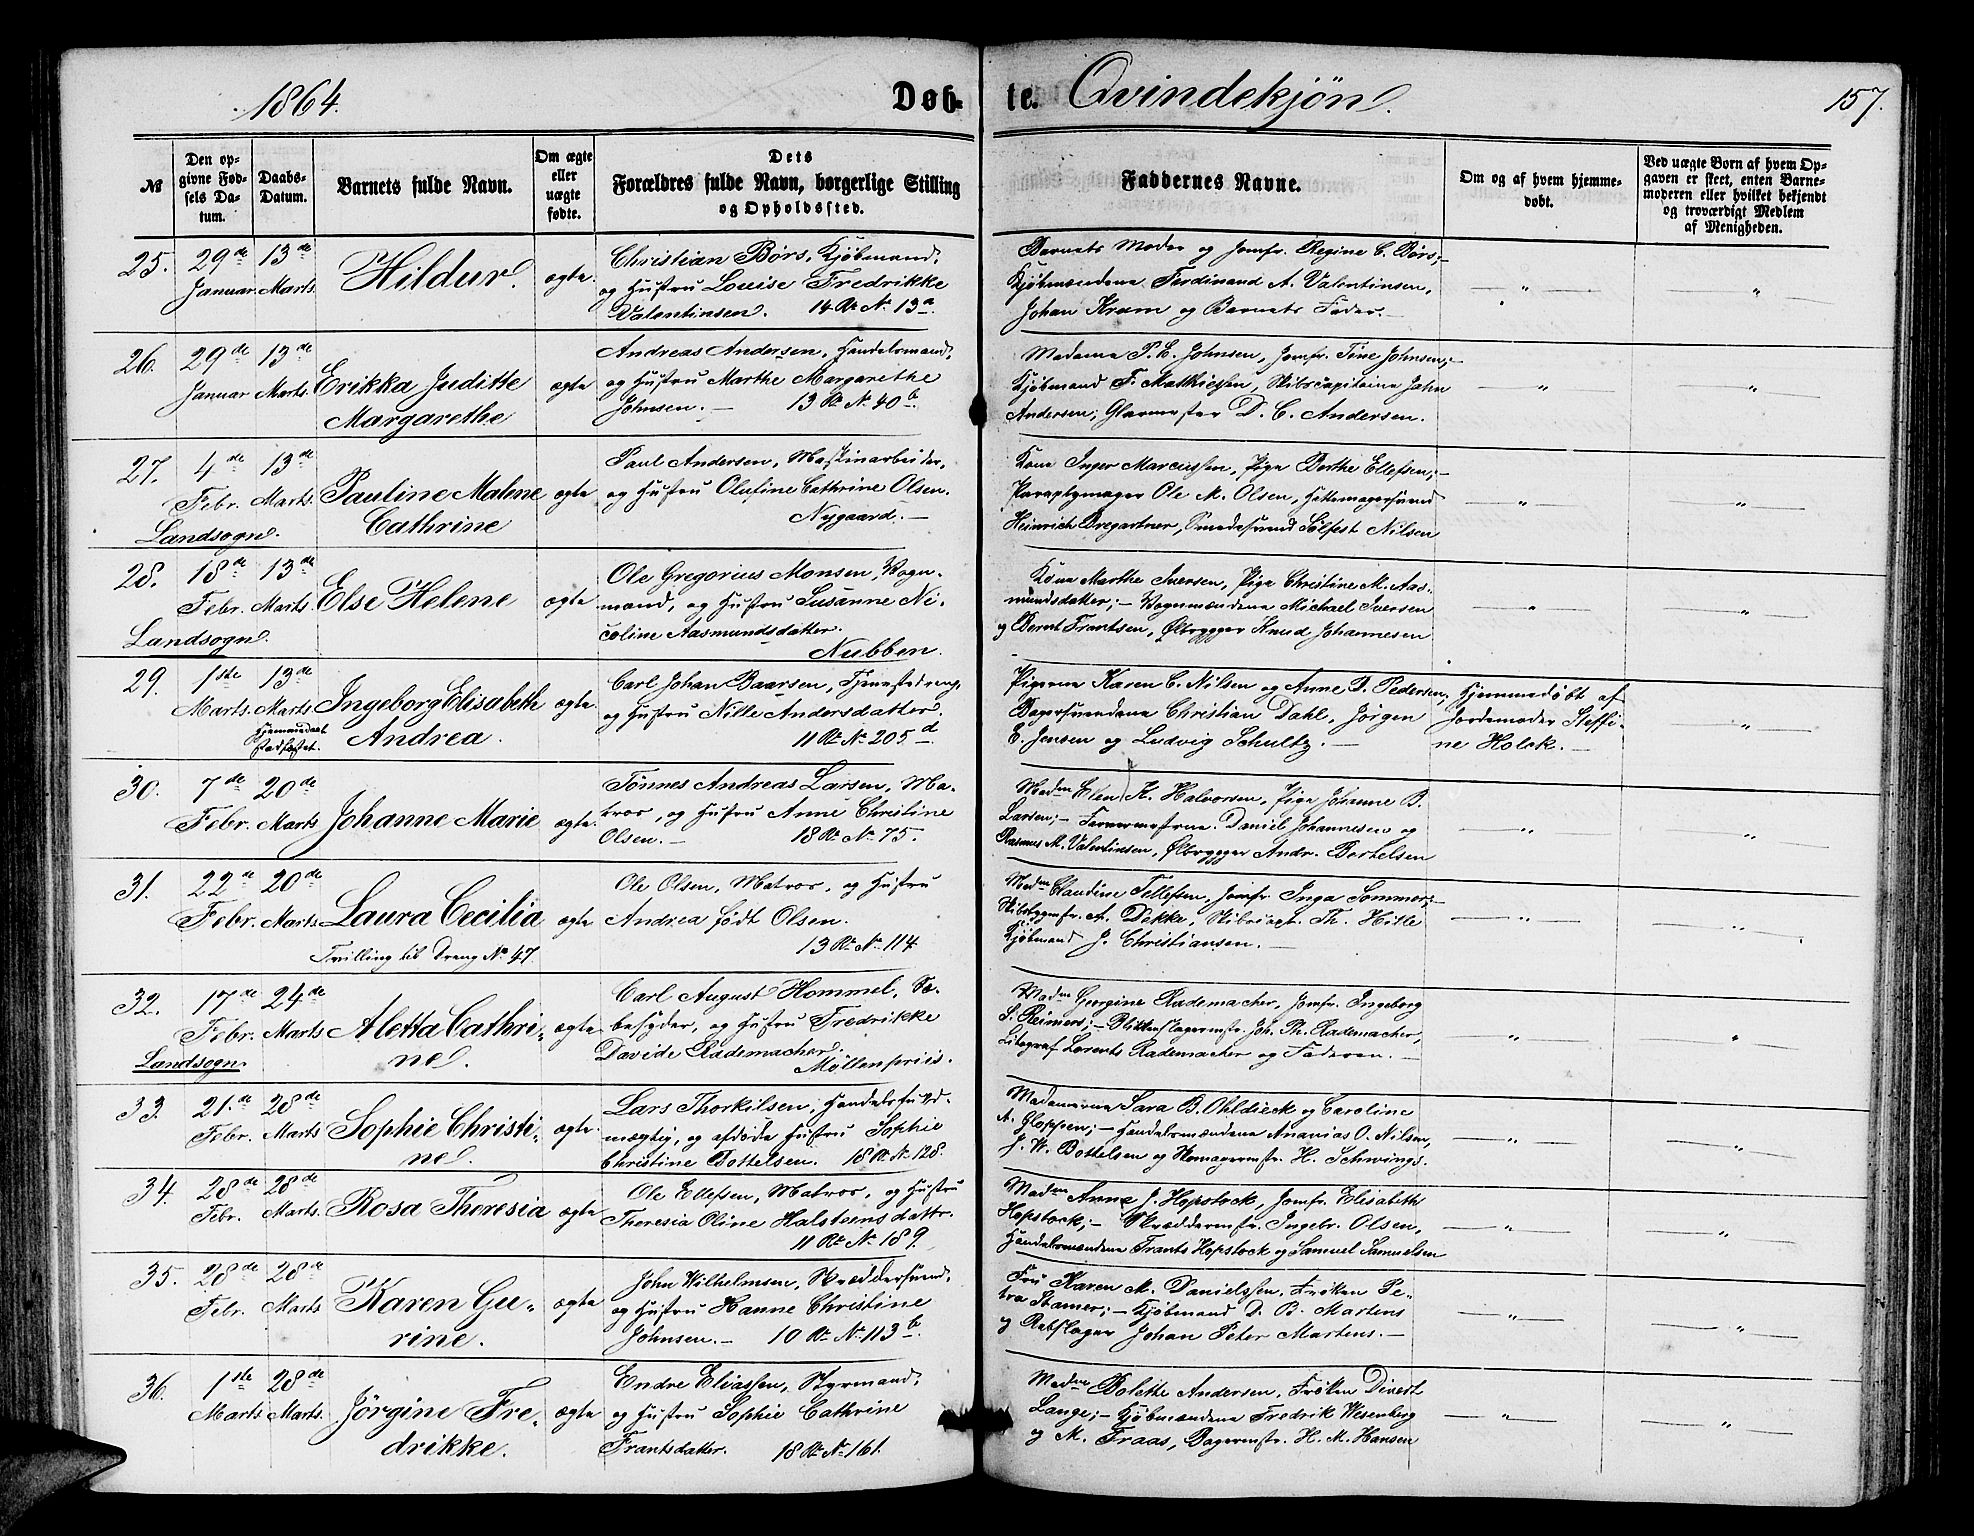 1864.
Døb-
te. Qvindekjøn.
157.
№
Den op-
givne Fød-
sels Da-
tum.
Daabs-
Datum.
Barnets fulde Navn.
Om ægte
eller
uægte
fødte.
Dets
Forældres fulde Navn, borgerlige Stilling
og Opholdssted.
Faddernes Navne.
Om og af hvem hjemme-
døbt.
Ved uægte Børn af hvem Op-
gaven er skeet, enten Barne-
moderen eller hvilket bekjendt
og troværdigt Medlem
af Menigheden.
25. 29de Januar. 13de Marts. Hildur. ægte.
Christian Børs, Kjøbmand,
og Hustru Louise Fredrikke
Valentinsen. 14 Rt. N. 13a.
Barnets Moder og Jomfr. Regine C. Børs;-
Kjøbmændene Ferdinand A. Valentinsen,
Johan Kram og Barnets Fader.-
26. 29de Januar 13de Marts. Erikka Juditte
Margarethe ægte
Andreas Andersen, Handelsmand,
og Hustru Marthe Margarethe
Johnsen.- 13 Rt. N. 40b.
Madame P. E. Johnsen, Jomfr. Tine Johnsen;-
Kjøbmand F. Matthiessen, Skibscapitaine Jahn
Andersen, Glarmester D. C. Andersen.
27. 4de Febr. 13de Marts. Pauline Malene
Cathrine ægte
Landsogn.
Paul Andersen, Maskinarbeider,
og Hustru Olufine Cathrine Olsen.
Nygaard.-
Kone Inger Marcussen, Pige Berthe Ellefsen;-
Paraplymager Ole M. Olsen, Hattemagersvend
Heinrich Bregartner, Smedesvend Sølfest Nilsen
28. 18de Febr. 13de Marts. Else Helene ægte
Landsogn.
Ole Gregorius Monsen, Vogn-
mand, og Hustru Susanne Ni-
coline Aasmundsdatter.
Nubben.
Kone Marthe Iversen, Pige Christine M. Aas-
mundsdatter;- Vognmændene Michael Iversen
og Bernt Frantsen, Ølbrygger Knud Johannesen
29. 1ste Marts. 13de Marts. Ingeborg Elisabeth
Andrea. ægte.
Hjemmedaab
stadfæstet.
Carl Johan Baarsen, Tjenestedreng,
og Hustru Nille Andersdatter.
11 Rt. N. 205d.
Pigerne Karen C. Nilsen og Anne D. Pedersen,
Bagersvendene Christian Dahl, Jørgen
E. Jensen og Ludvig Schultz.-
Hjemmedøbt af
Jordemoder Steffi-
ne Holck.-
30. 7de Febr. 20de Marts Johanne Marie ægte.
Tønnes Andreas Larsen, Ma-
tros, og Hustru Anne Christine
Olsen.- 18 Rt. N. 75.
Madme Elen K. Halvorsen, Pige Johanne B.
Larsen;- Farvermesterne Daniel Johannesen og
Rasmus M. Valentinsen, Ølbrygger Andr. Bertelsen
31. 22de Febr. 20de Marts. Laura Cecilia ægte
Tvilling til Dreng No. 47.
Ole Olsen, Matros, og Hustru
Andrea født Olsen.
13 Rt. N. 114
Madme Claudine Tellefsen, Jomfr. Inga Sommer;-
Skibsbygmstr. A. Dekke, Skibscapt. Th. Hille
Kjøbmand J. Christiansen.-
32. 17de Febr. 24de Marts Aletta Cathri-
ne. ægte.
Landsogn.
Carl August Hommel, Sæ-
besyder, og Hustru Fredrikke
Davide Rademacher.
Møllenpriis.
Madme Georgine Rademacher, Jomfr. Ingeborg
S. Reimers;- Blikkenslagermstr. Joh. Th. Rademacher,
Litograf Lorents Rademacher og Faderen.-
33. 21.de Febr. 28de Marts Sophie Christi-
ne. ægte.
Lars Thorkilsen, Handelsfuld-
mægtig, og afdøde Hustru Sophie
Christine Bottelsen. 18 Rt. N. 128.
Madamerne Sara B. Ohldieck og Caroline
A. Gloppen;- Handelsmændene Ananias O. Nilsen,
J. W. Bottelsen og H. Schwings.
34. 28de Febr. 28de Marts. Rosa Theresia ægte
Ole Ellefsen, Matros, og Hustru
Theresia Oline Halsteensdattr.
11 Rt. N. 189.
Madme Anne J. Hopstock, Jomfr. Elisabeth
Hopstock;- Skræddermstr. Ingebr. Olsen,
Handelsmændene Frants Hopstock og Samuel Samuelsen
35. 28de Febr. 28de Marts Karen Gu-
rine. ægte
John Wilhelmsen, Skræddersvend,
og Hustru Hanne Christine
Johnsen.- 10 Rt. N. 113b.
Fru Karen M. Danielssen, Frøken Pe-
tra Stamer;- Kjøbmand D. B. Martens
og Rebslager Johan Peter Martens.-
36. 1ste Marts 28de Marts. Jörgine Fre-
drikke. ægte
Endre Eliassen, Styrmand,
og Hustru Sophie Cathrine
Frantsdatter. 18 Rt. N. 161.
Madme Bolette Andersen, Frøken Divert
Lange;- Kjøbmændene Fredrik Wesenberg
og M. Fraas, Bagermstr. H. M. Hansen